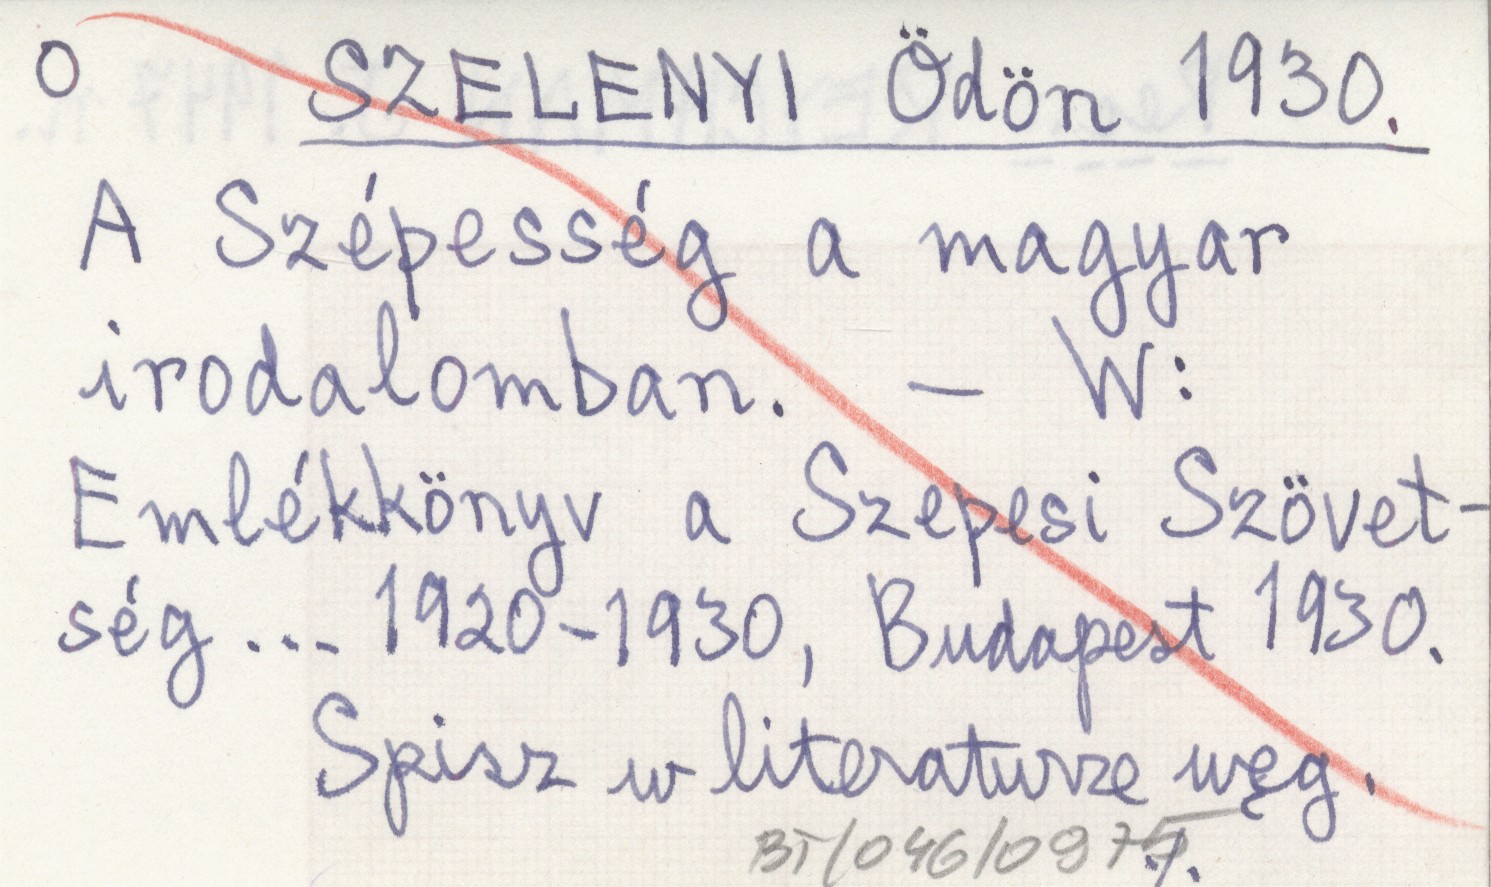 O SZELENYI Ödön 1930.
A Szépesség a magyar
irodalomban. — W:
Emlékkönyv a Szepesi Szövet-
ség... 1920-1930, Budapest 1930.
Spisz w literaturze węg.
BT/046/0975